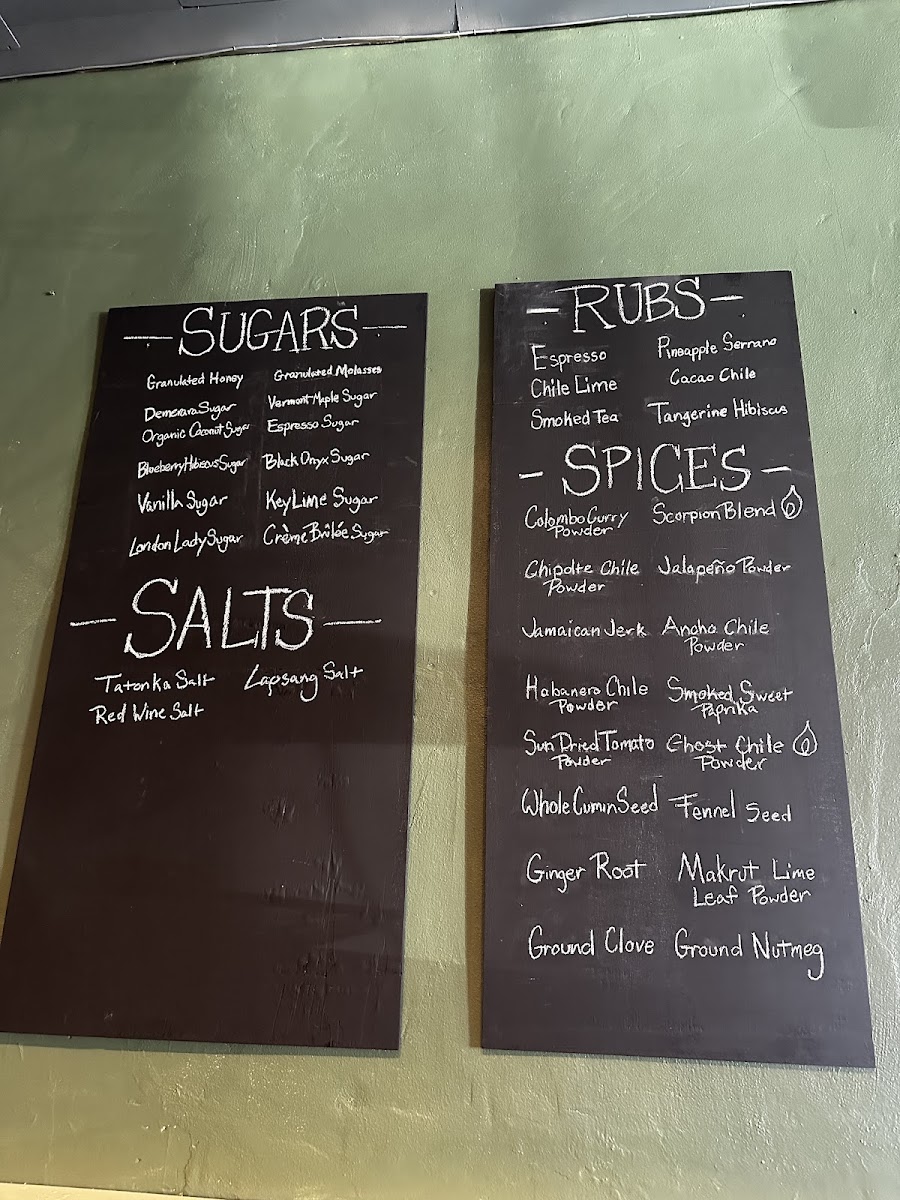 - SUGARS -
Granulated Honey
Granulated Molasses
Demerara Sugar
Vermont Maple Sugar
Organic Coconut Sugar
Espresso Sugar
Blueberry Hibiscus Sugar
Black Onyx Sugar
Vanilla Sugar
Key Lime Sugar
London Lady Sugar
Crème Brûlée Sugar
- SALTS -
Tatonka Salt
Lapsang Salt
Red Wine Salt
- RUBS -
Espresso
Pineapple Serrano
Chile Lime
Cacao Chile
Smoked Tea
Tangerine Hibiscus
- SPICES -
Colombo Curry
Powder
Scorpion Blend
Chipolte Chile
Powder
Jalapeño Powder
Jamaican Jerk
Ancho Chile
Powder
Habanero Chile
Powder
Smoked Sweet
Paprika
Sun Dried Tomato
Powder
Ghost Chile
Powder
Whole Cumin Seed
Fennel Seed
Ginger Root
Makrut Lime
Leaf Powder
Ground Clove
Ground Nutmeg